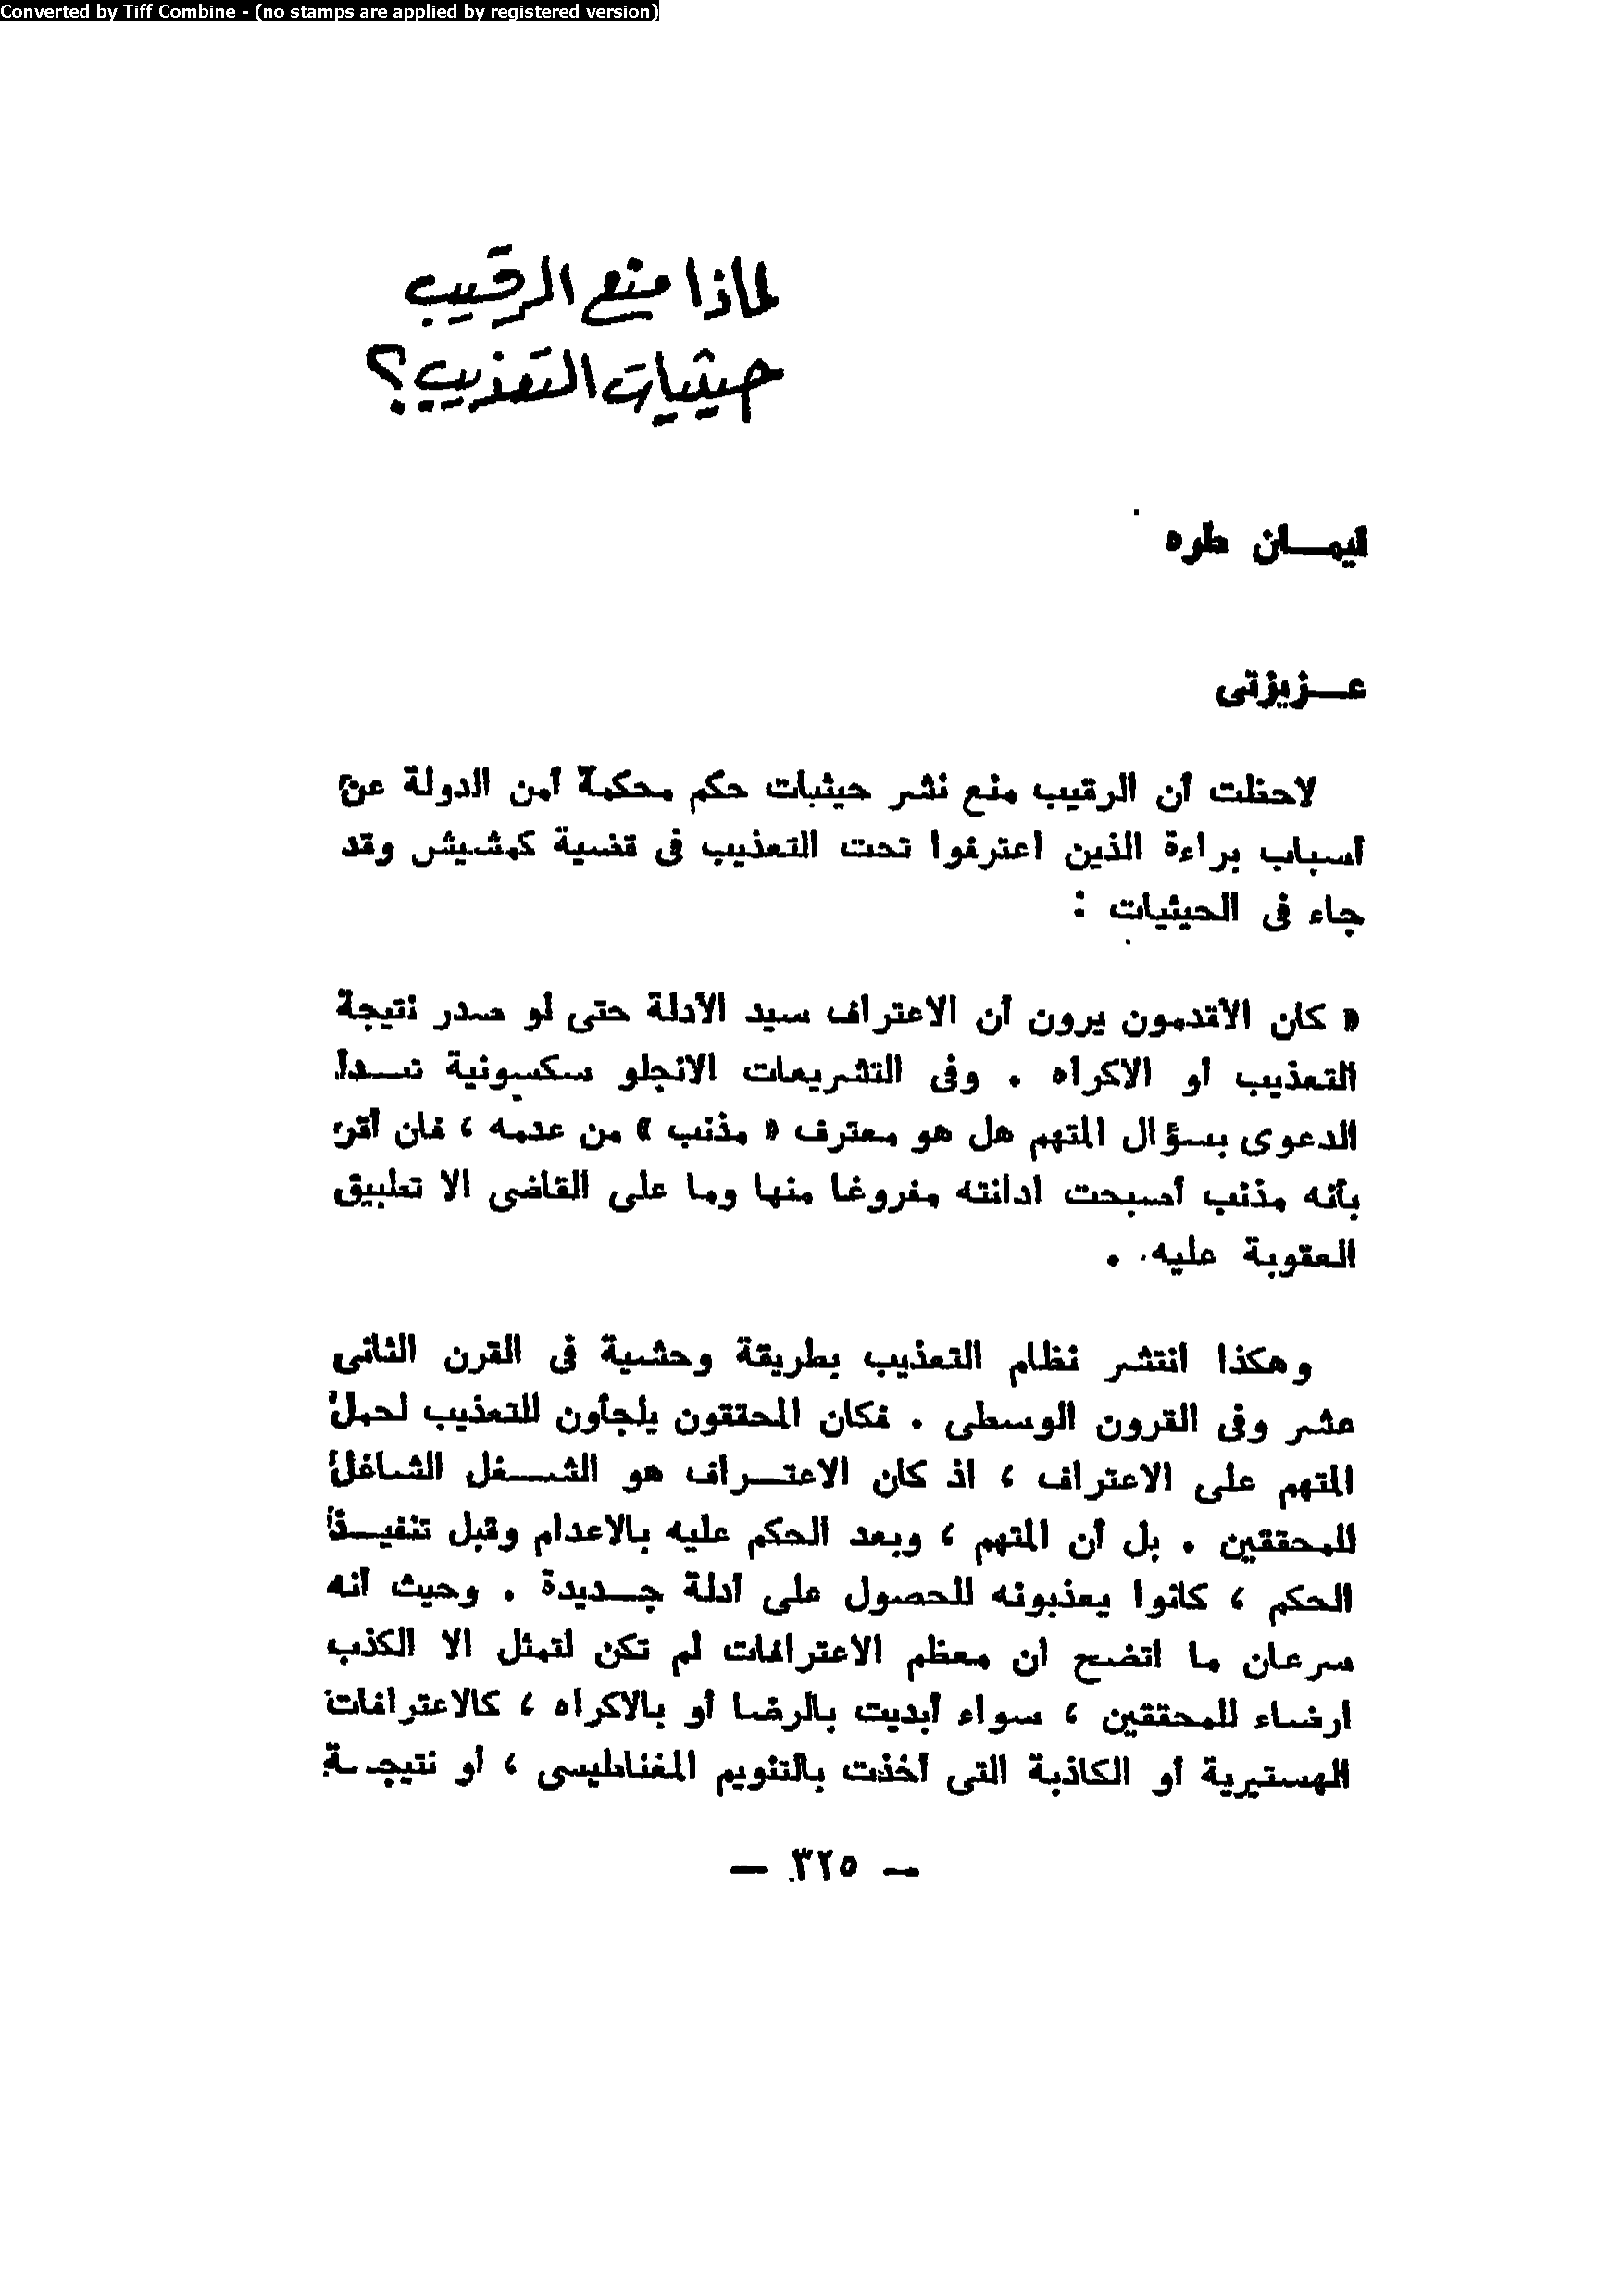 Converted by Tiff Combine - (no stamps are applied by registered version)
لماذا منع الرقيب
حيثيات التعذيب؟
ليمان طره
عزيزتى
لاحظت أن الرقيب منع نشر حيثيات حكم محكمة أمن الدولة عن
أسباب براءة الذين اعترفوا تحت التعذيب فى قضية كمشيش وقد
جاء فى الحيثيات :
« كان الأقدمون يرون أن الاعتراف سيد الأدلة حتى لو صدر نتيجة
التعذيب أو الاكراه . وفى التشريعات الانجلو سكسونية تبدأ
الدعوى بسؤال المتهم هل هو معترف « مذنب » من عدمه ، فان أقر
بأنه مذنب أصبحت ادانته مفروغا منها وما على القاضى الا تطبيق
العقوبة عليه .
وهكذا انتشر نظام التعذيب بطريقة وحشية فى القرن الثانى
عشر وفى القرون الوسطى . فكان المحققون يلجأون للتعذيب لحمل
المتهم على الاعتراف ، اذ كان الاعتراف هو الشغل الشاغل
للمحققين . بل أن المتهم ، وبعد الحكم عليه بالاعدام وقبل تنفيذ
الحكم ، كانوا يعذبونه للحصول على أدلة جديدة . وحيث أنه
سرعان ما اتضح ان معظم الاعترافات لم تكن لتمثل الا الكذب
ارضاء للمحققين ، سواء أبديت بالرضا أو بالاكراه ، كالاعترافات
الهستيرية أو الكاذبة التى أخذت بالتنويم المغناطيسى ، أو نتيجة
— ٣٢٥ —